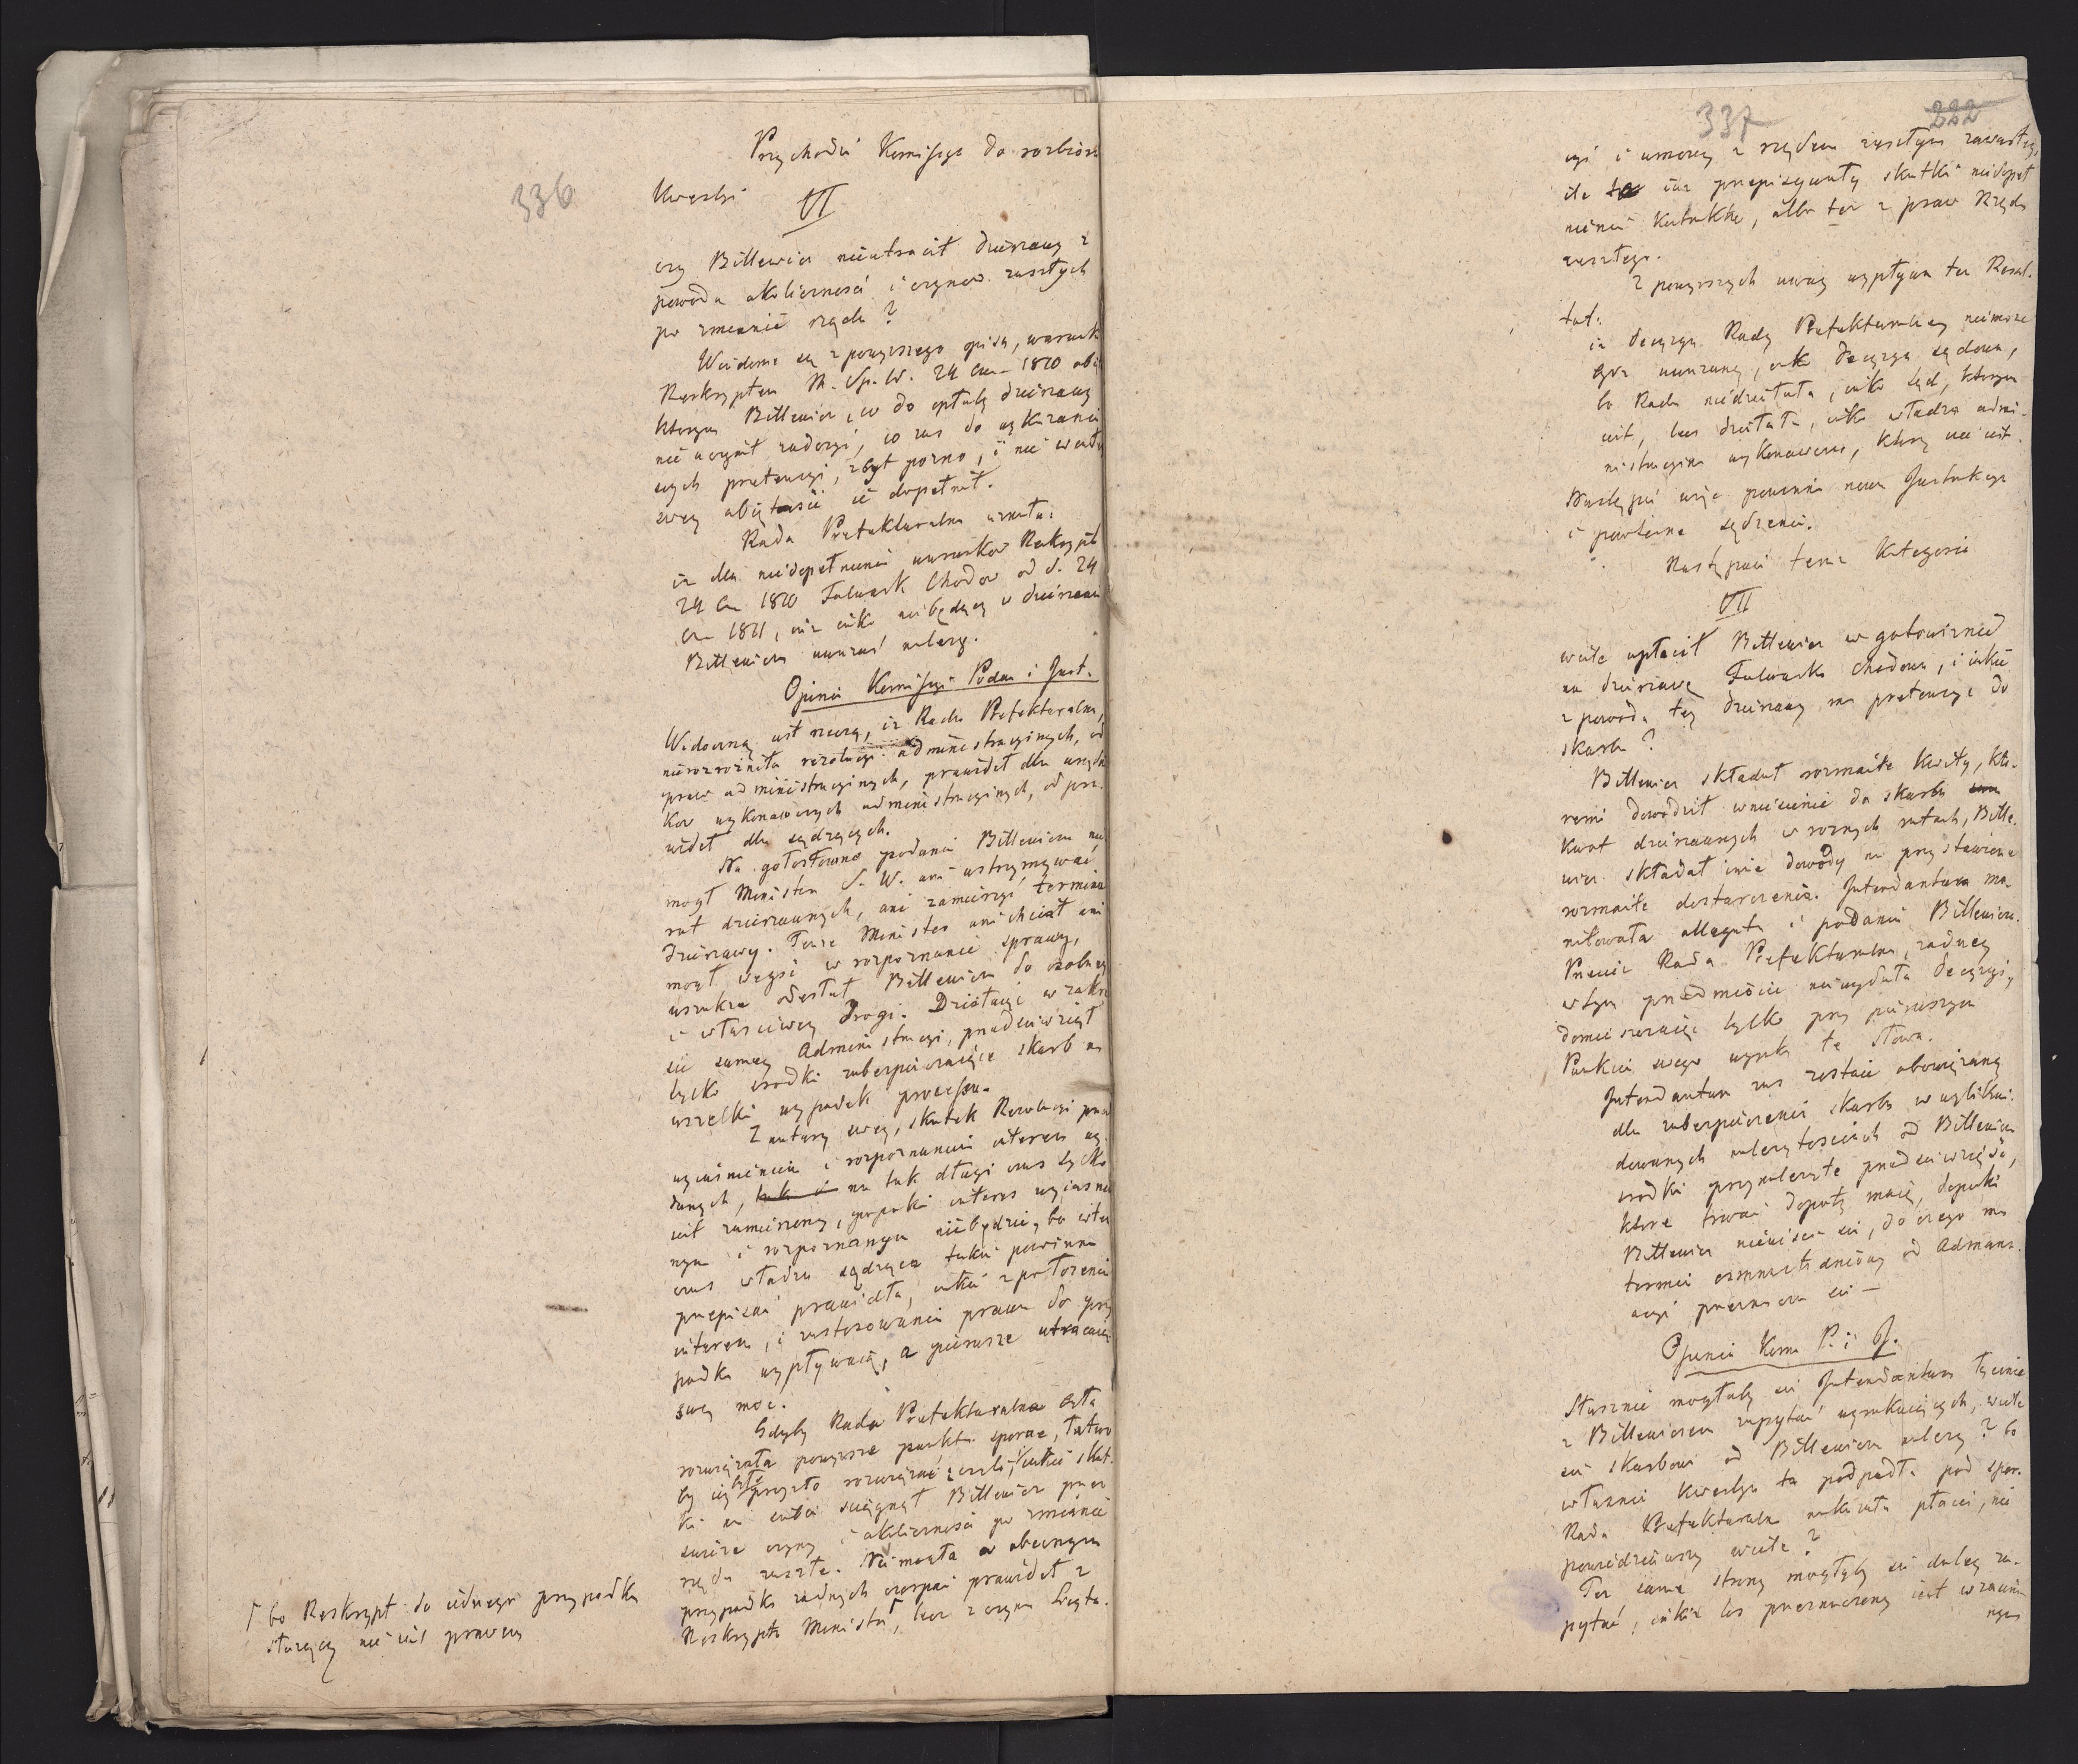 336
Przychodzi Komissya do rozbioru
Kwestyi
VI
czy Billewicz nieutracił dzierzawy z
powodu okoliczności i czynow zaszłych
po zmianie rządu?
Wiadome są z powyzszego opisu, warunki
Reskryptem M. Sp. W. 24 Cze 1810 obię
ktorym Billewicz, co do opłaty dzierzawy
nie uczynił zadosyć, co zas do wykazania
swych pretensyi, zbyt pozno, i nie w całey
swey obiętości ie dopełnił.
Rada Prefekturalna uznała:
iz dla niedopełnienia warunkow Reskryptu
24 Cze 1810 Folwark Chodow od d. 24
Cze 1811, iuz iako niebędący w dzierzawie
Billewicza uwazać nalezy.
Opinia Komissyi Podan i Inst.
Widoczną iest rzeczą, iz Rada Prefekturalna,
nierozrozniła rezolucyi administracyinych, od
praw administracyinych, prawideł dla urzędni
kow wykonawczych administracyinych, od pra
wideł dla sądzących.
Na gołosłowne podania Billewicza nie
mogł Minister S. W. ani wstrzymywać
rat dzierzawnych, ani zamierzyć terminu
Dzierzawy. Tenze Minister ani chciał ani
mogł weyść w rozpoznanie sprawy,
wszakze odesłał Billewicza do osobney
i właściwey Drogi. Działaiąc w zakre
sie samey Administracyi, przedsiewziął
tylko srodki zabezpieczaiące skarb na
wszelki wypadek processu.
Z natury swey, skutek Rezolucyi przed
wyiasnieniem i rozpoznaniem interesu wy
danych, na tak długi czas tylko
iest zamierzony, popoki interes wyiasnio
nym i rozpoznanym niebędzie, bo wten
czas władza sądząca takie powinna
przepisać prawidła, iakie z połozenia
interesu, i zastosowania prawa do przy
padku wypływaią, a pierwsze utracaią
swą moc.
Gdyby Rada Prefekturalna była
rozwiązała powyzsze punkta sporne, łatwo
by iey było przyszło rozwiązać: czyli, i iakie skut
ki na siebie sciągnął Billewicz przez
swoie czyny i okoliczności po zmianie
rządu zaszłe. Nie mogła w obecnym
przypadku zadnych czerpać prawideł z
Reskryptu Ministra, lecz z czynu Licyta.
⌈ bo Reskrypt do iednego przypadku
słuzący nie iest prawem
337
222
cyi i umowy z rządem zeszłym zawartey,
ile iuz przepisywały skutki niedopeł
nienia Kontraktu, albo tez z praw Rządu
zeszłego.
Z powyzszych uwag wypływa ten Rezul.
tat:
iz decyzya Rady Prefekturalney niemoze
bydz uwazaną, iako decyzya sądowa,
bo Rada niedziałała, iako Sąd, ktorym
iest, lecz działała, iako władza admi.
nistracyina wykonawcza, ktorą nie iest.
Nastąpić więc powinna nowa Instrukcya
i powtorne sądzenie.
Następuie teraz Kategoria
VII
wiele opłacił Billewicz w gotowiznie
na dzierzawę Folwarku Chodowa, i iakie
z powodu tey dzierzawy ma pretensye do
skarbu?
Billewicz składał rozmaite Kwity, kto.
remi dowodził wniesienie do skarbu
Kwot dzierzawnych w roznych ratach, Bille.
wicz składał inne dowody na przystawione
rozmaite dostarczenia. Intendantura mo
nitowała allegata i podania Billewicza.
Przeciez Rada Prefekturalna, zadney
w tym przedmiocie niewydała decyzyi,
domieszczaiąc tylko przy pierwszym
Punkcie swego wyroku te słowa.
Intendantura zas zostaie obowiązaną
dla zabezpieczenia skarbu w wylikwi.
dowanych nalezytościach od Billewicza
srodki przynalezyte przedsiewziąść,
ktore trwać dopoty maią, dopoki
Billewicz nieuiści się, do czego mu
termin osmnastodniowy od Admoni.
acyi przeznacza się —
Opinia Kom P. i I.
Słusznie mogłaby się Intendantura łącznie
z Billewiczem zapytać wyrokuiących, wiele
się skarbowi od Billewicza nalezy? bo
własnie kwestya ta podpadła pod spor.
Rada Prefekturalna nakazała płacić, nie
powiedziawszy wiele?
Tez same strony mogłyby się daley za.
pytać, iakiz los przeznaczony iest wzaiem
nym